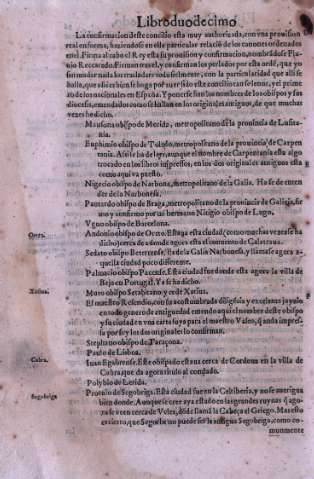 Libro duodecimo
La confirmacion deste concilio esta muy authorizada, con vna prouision
real en suma, haziendose en ella particular relació de los canones ordenados
en el. Firma al cabo el Rey esta su prouision y confirmacion, nombrãdose Fla-
uio Reccaredo. Firman tras el, y confirman los perlados por esta ordẽ, que yo
sin mudar nada los trasladare todos
hallo, que aũ es bien se haga por auer sido este concilio tan solene, y el prime
ro de los nacionales en España. Y ponerse han los nombres de los obispos y sus
diocesis, emendados como se hallan en los originales antiguos, de que muchas
vezes he dicho.
Massona obispo de Merida, metropolitano de la prouincia de Lusita-
nia.
Euphimio obispo de Toledo, metropolitano de la prouincia de Carpen
tania. Assi se ha de leer, aunque el nombre de Carpentania esta algo
trocado en los libros impressos, en los dos originales antiguos esta
como aqui va puesto.
Nigecio obispo de Narbona, metropolitano de la Galia. Ha se de enten
der de la Narbonesa.
Pantardo obispo de Braga, metropolitano de la prouincia de Galizia, fir
mo y confirmo por su hermano Nitigio obispo de Lugo.
Vgno obispo de Barcelona.
Oreto.
Andonio obispo de Oreto. Esta ya es ciudad (como muchas vezes se ha
dicho) cerca de a donde agora esta el conuento de Calatraua.
Sedato obispo Beterrense. Es de la Galia Narbonesa, y llamase agora a-
quella ciudad poco diferente.
Palmacio obispo Pacense. Esta ciudad fue donde esta agora la villa de
Beja en Portugal. Ya se ha dicho.
Xatiua.
Muto obispo Setabitano, y es de Xatiua.
El maestro Resendio, con su acostumbrada diligẽcia y excelente juyzio
en todo genero de antiguedad emendo aqui el nombre deste obispo
y su ciudad en vna carta suya para el maestro Vaseo, q̃ anda impres-
sa por si: y los dos originales lo confirman.
Stephano obispo de Taraçona.
Paulo de Lisboa.
Cabra.
Iuan Egabrense. Este obispado esta cerca de Cordoua en la villa de
Cabra, que da agora titulo al condado.
Polybio de Lerida.
Segobriga
Proculo de Segobriga. Esta ciudad fue en la Celtiberia, y no se aueri­gua
bien donde. Aunque se cree aya estado en las grandes ruynas q̃ ago-
ra se veen cerca de Veles, dõde llamã la Cabeça el Griego. Mas esto
es cierto, que Segorbe no puede ser la antigua Segobriga, como co-
munmente